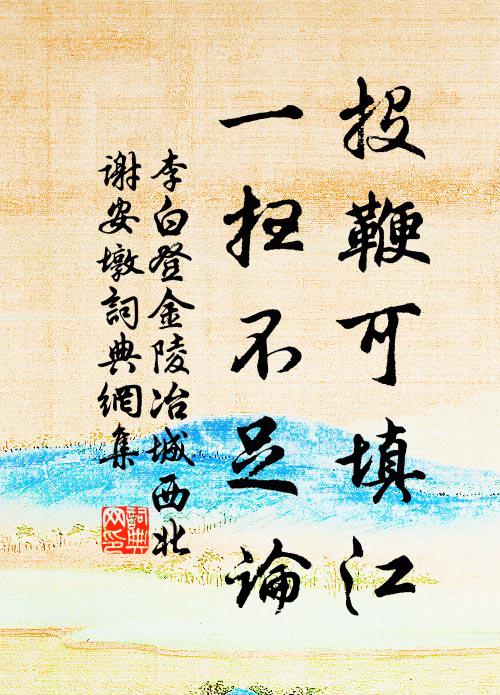 投鞭可填江
一扫不足論
李白登金陵冶城西北
谢安墩詞典網集
詞典
网印